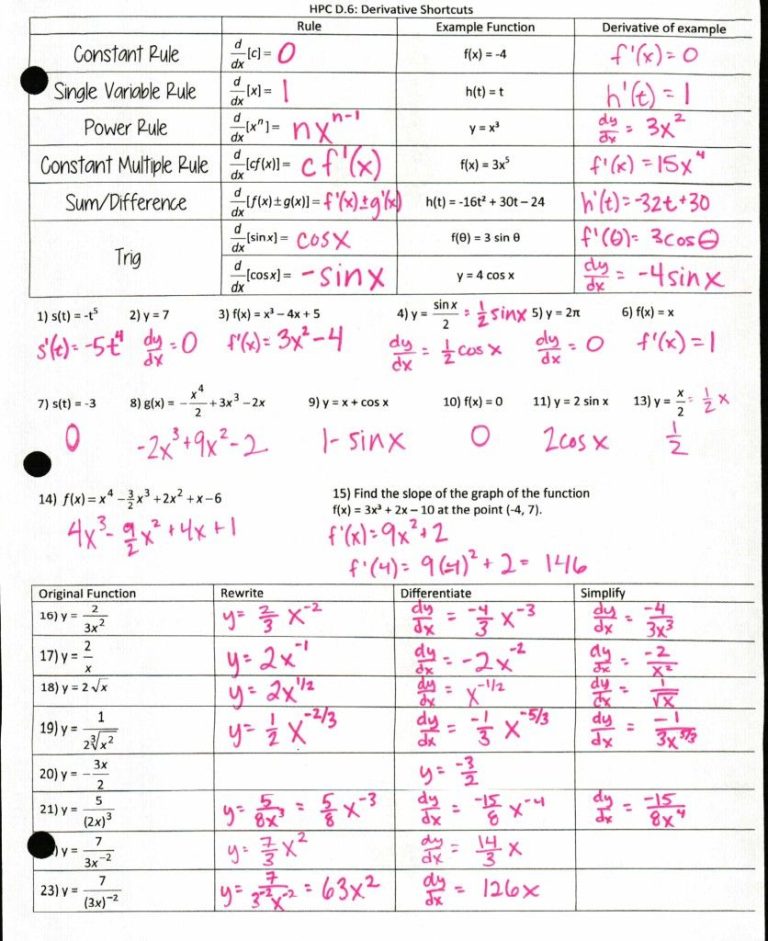 HPC D.6: Derivative Shortcuts
Rule Example Function Derivative of example
Constant Rule d/dx [c] = 0 f(x) = -4 f'(x) = 0
Single Variable Rule d/dx [x] = 1 h(t) = t h'(t) = 1
Power Rule d/dx [xⁿ] = nxⁿ⁻¹ y = x³ dy/dx = 3x²
Constant Multiple Rule d/dx [cf(x)] = cf'(x) f(x) = 3x⁵ f'(x) = 15x⁴
Sum/Difference d/dx [f(x) ± g(x)] = f'(x) ± g'(x) h(t) = -16t² + 30t – 24 h'(t) = -32t + 30
Trig d/dx [sin x] = cosx f(θ) = 3 sin θ f'(θ) = 3cosθ
d/dx [cos x] = -sinx y = 4 cos x dy/dx = -4sinx
1) s(t) = -t⁵ 2) y = 7 3) f(x) = x³ – 4x + 5 4) y = sin x/2 = 1/2 sinx 5) y = 2π 6) f(x) = x
s'(t) = -5t⁴ dy/dx = 0 f'(x) = 3x² - 4 dy/dx = 1/2 cosx dy/dx = 0 f'(x) = 1
7) s(t) = -3 8) g(x) = -x⁴/2 + 3x³ – 2x 9) y = x + cos x 10) f(x) = 0 11) y = 2 sin x 13) y = x/2 = 1/2 x
0 -2x³ + 9x² - 2 1 - sinx 0 2cosx 1/2
14) f(x) = x⁴ – 3/2 x³ + 2x² + x – 6 15) Find the slope of the graph of the function
f(x) = 3x³ + 2x – 10 at the point (-4, 7).
4x³ - 9/2 x² + 4x + 1 f'(x) = 9x² + 2
f'(4) = 9(-4)² + 2 = 146
Original Function Rewrite Differentiate Simplify
16) y = 2/3x² y = 2/3 x⁻² dy/dx = -4/3 x⁻³ dy/dx = -4/3x³
17) y = 2/x y = 2x⁻¹ dy/dx = -2x⁻² dy/dx = -2/x²
18) y = 2√x y = 2x^1/2 dy/dx = x^-1/2 dy/dx = 1/√x
19) y = 1/2∛x² y = 1/2 x^-2/3 dy/dx = -1/3 x^-5/3 dy/dx = -1/3x^5/3
20) y = -3x/2 y = -3/2
21) y = 5/(2x)³ y = 5/8x³ = 5/8 x⁻³ dy/dx = -15/8 x⁻⁴ dy/dx = -15/8x⁴
) y = 7/3x⁻² y = 7/3 x² dy/dx = 14/3 x
23) y = 7/(3x)⁻² y = 7/3⁻²x⁻² = 63x² dy/dx = 126x